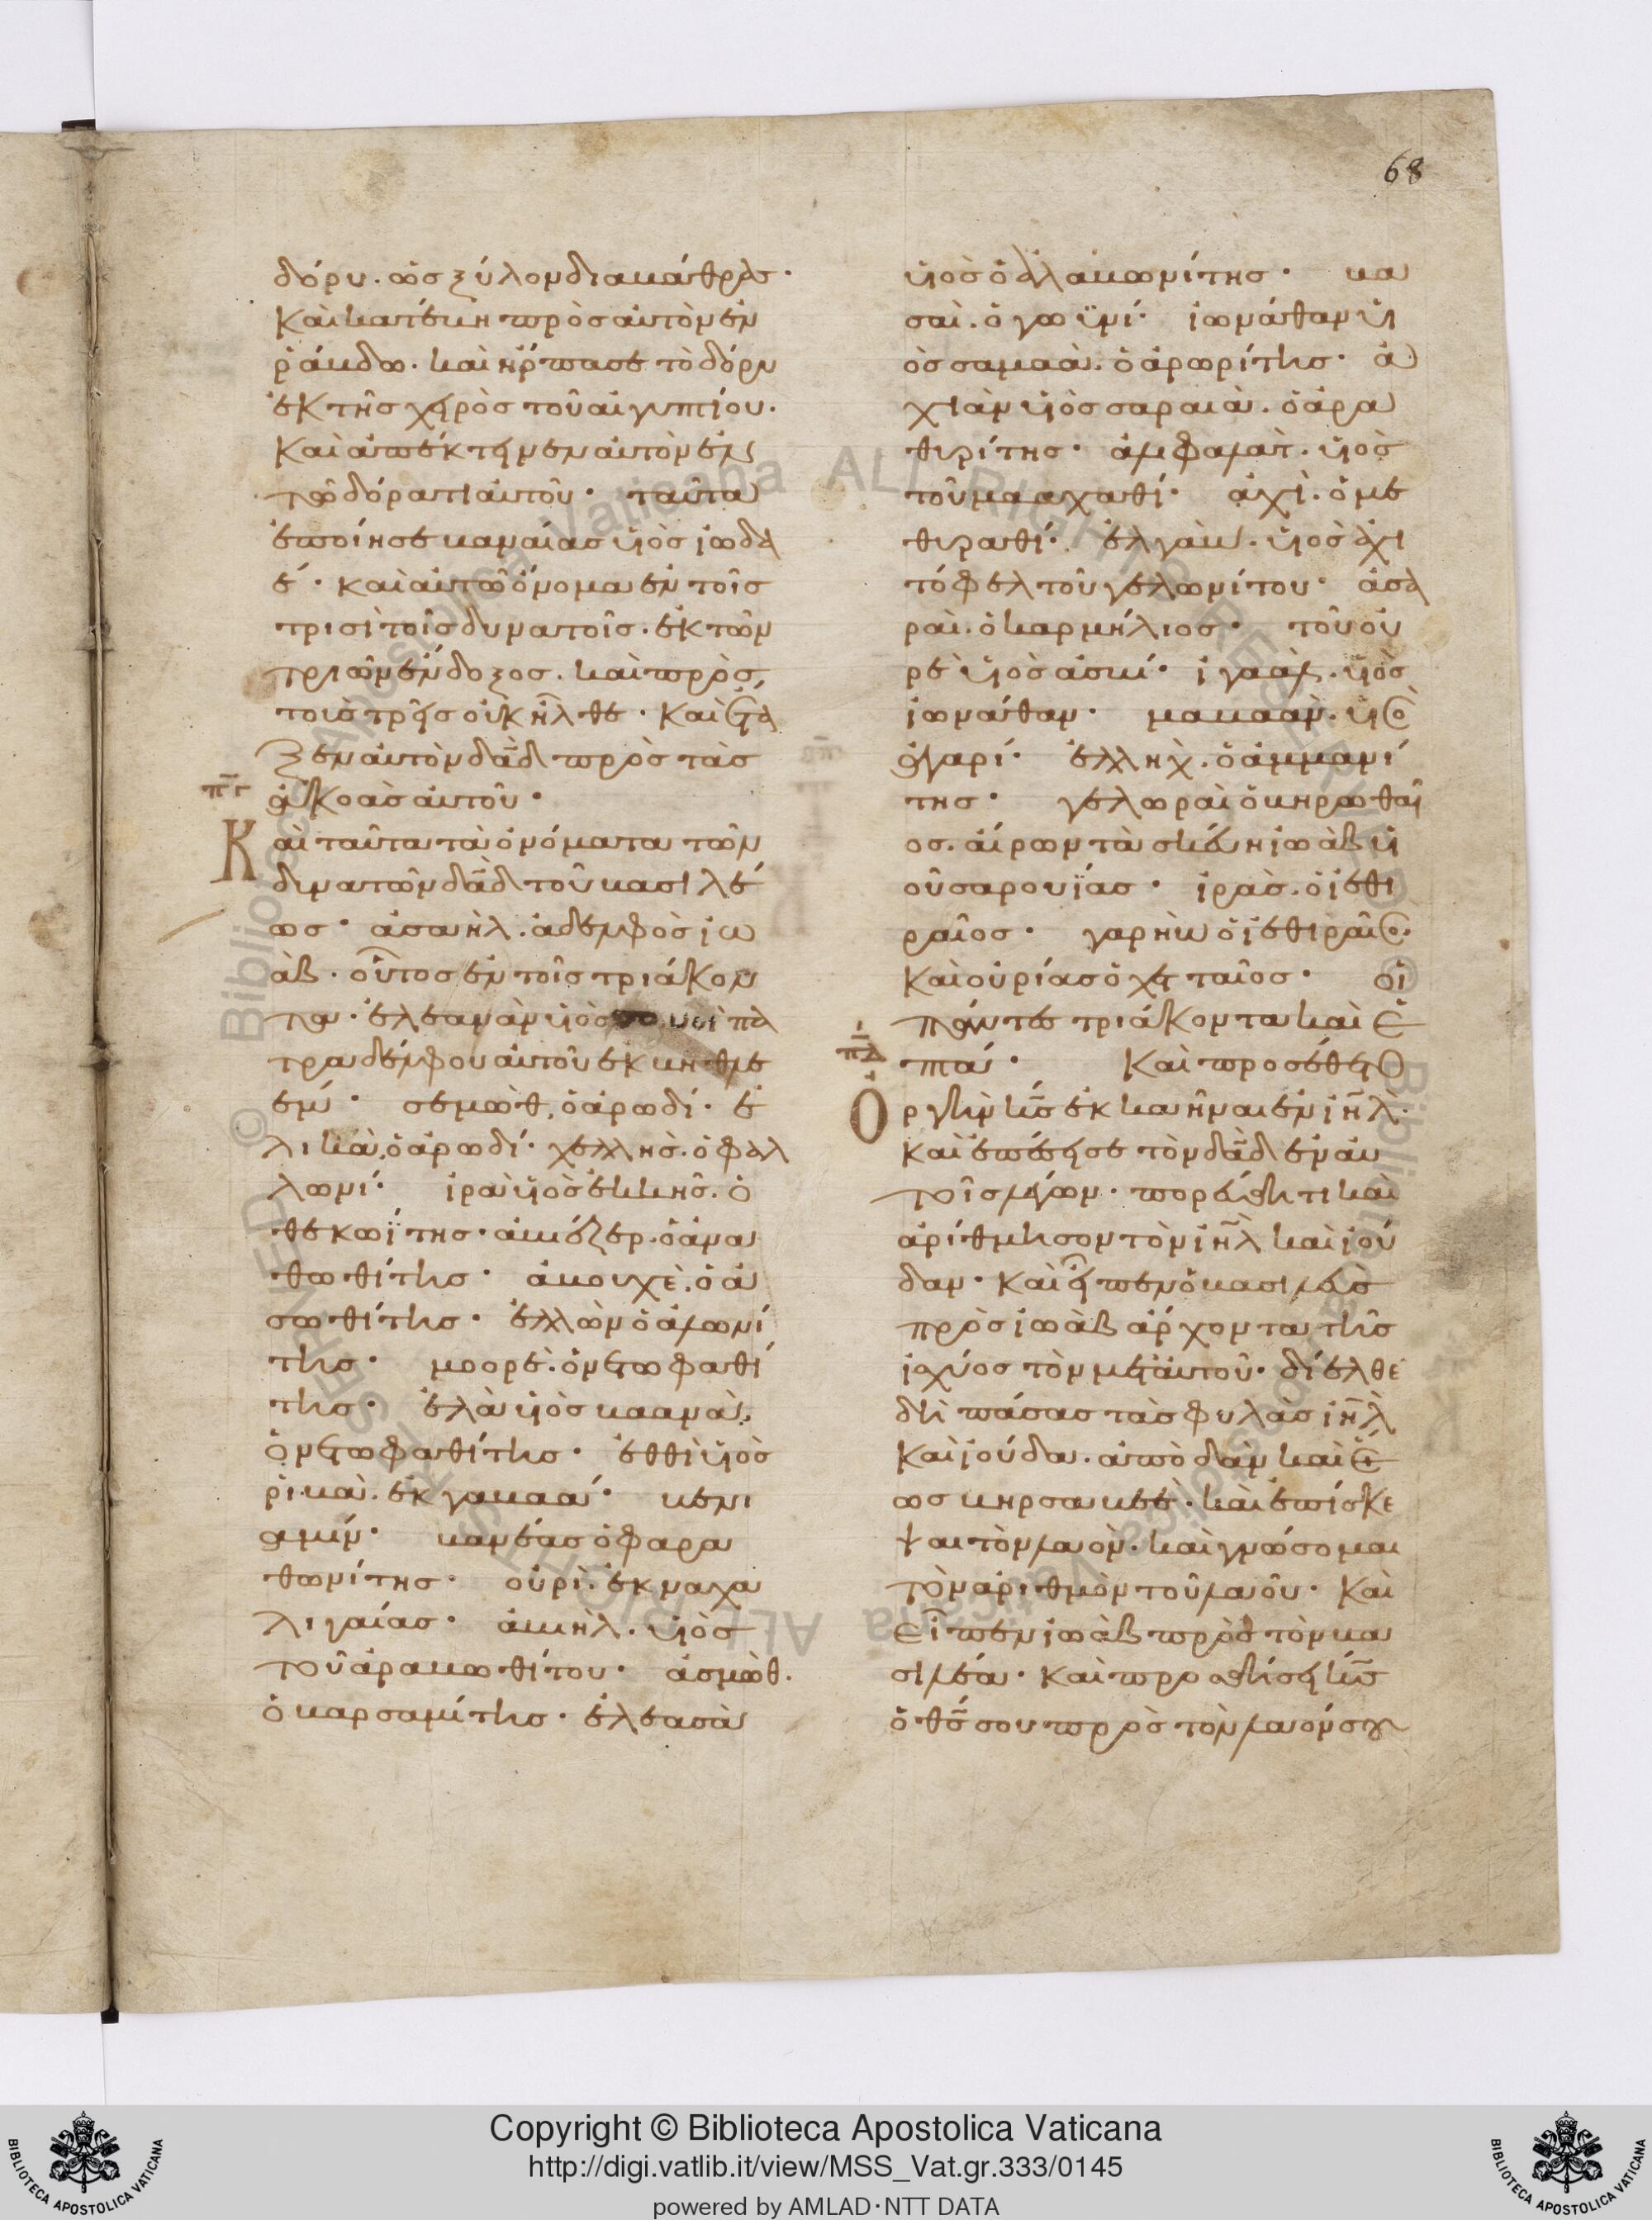 68
δόρυ. ὡς ξύλον διαβάθρας·
καὶ κατέβη πρὸς αὐτὸν ἐν
ῥάβδω. καὶ ἥρπασε τὸ δόρυ
ἐκ τῆς χειρὸς τοῦ αἰγυπτίου.
καὶ ἀπέκτεινεν αὐτὸν ἐν
τῶ δόρατι αὐτοῦ· ταῦτα
ἐποίησε βαναίας υἱὸς ἰωδα
έ· καὶ αὐτῶ ὄνομα ἐν τοῖς
τρισὶ τοῖς δυνατοῖς. ἐκ τῶν
τριῶν ἔνδοξος. καὶ πρὸς
τοὺς τρεῖς οὐκ ἦλθε· καὶ ἔτα
ξεν αὐτὸν δᾱδ πρὸς τὰς
ἀκοὰς αὐτοῦ·
πγ
Καὶ ταῦτα τὰ ὀνόματα τῶν
δυνατῶν δᾱδ τοῦ βασιλέ
ως· ἀσαὴλ. ἀδελφὸς ἰω
ὰβ. οὗτος ἐν τοῖς τριάκον
τα· ἐλεανὰν υἱὸς πα
τραδέλφου αὐτοῦ ἐκ βηθλε
έμ· σεμὼθ. ὁ ἀρωδί· ἐ
λικὰ. ὁ ἀρωδί· χελλὴς. ὁ φαλ
λωνί· ἱρὰ υἱὸς ἐκκῆς. ὁ
θεκωΐτης· ἀβιέζερ. ὁ ἀνα
θωθίτης· ἀβουχὲ. ὁ ἀ
σωθίτης· ἐλλὼν ὁ ἀλωνί
της· μοορὲ. ὁ νετωφαθί
της· ἐλὰ υἱὸς βαανὰ.
ὁ νετωφαθίτης· ἐθθὶ υἱὸς
ῥιβὰ. ἐκ γαβαά· βενι
αμίν· βανέας ὁ φαρα
θωνίτης· οὐρὶ. ἐκ ναχα
λιγαίας· ἀβιὴλ. υἱὸς
τοῦ ἀραβωθίτου· ἀσμὼθ.
ὁ βαρσαμίτης· ἐλεασὰ
υἱὸς ὁ ἀλαβωνίτης· βα
σαὶ. ὁ γωϋνί· ἰωνάθαν υἱ
ὸς σαμαὰ. ὁ ἀρωρίτης· ἀ
χιὰν υἱὸς σαραιὰ. ὁ ἀρα
θυρίτης· ἀμφαλὰτ. υἱὸς
τοῦ μααχαθί· ἀχὶ. ὁ με
θυραθί· ἐλγὰβ. υἱὸς ἀχι
τόφελ τοῦ γελωνίτου· ἀσα
ραὶ. ὁ καρμήλιος· τοῦ οὐ
ρὲ υἱὸς ἀσβί· ἰγαὰλ. υἱὸς
ἰωνάθαν· μαβαὰν. υἱὸς
ἀγαρί· ἐλλὴχ. ὁ ἀμμανί
της· γελωραὶ ὁ βηρωθαῖ
ος. αἴρων τὰ σκεύη ἰωὰβ υἱ
οῦ σαρουΐας· ἱρὰς. ὁ ἰεθι
ραῖος· γαρὴβ ὁ ἰεθιραῖος·
καὶ οὐρίας ὁ χετταῖος· οἱ
πάντες τριάκοντα καὶ ἑ
πτά· καὶ προσέθετο
πδ
Ὀργὴν κ̅ς ἐκκαῆναι ἐν ἰη̅λ·
καὶ ἐπέσεισε τὸν δᾱδ ἐν αὐ
τοῖς λέγων· πορεύθητι καὶ
ἀρίθμησον τὸν ἰη̅λ καὶ ἰού
δαν· καὶ εἶπεν ὁ βασιλεὺς
πρὸς ἰωὰβ ἄρχοντα τῆς
ἰσχύος τὸν μετ' αὐτοῦ· δίελθε
δὴ πάσας τὰς φυλὰς ἰη̅λ
καὶ ἰούδα. ἀπὸ δὰν καὶ ἕ
ως βηρσαβεέ. καὶ ἐπίσκε
ψαι τὸν λαὸν. καὶ γνώσομαι
τὸν ἀριθμὸν τοῦ λαοῦ· καὶ
εἶπεν ἰωὰβ πρὸς τὸν βα
σιλέα· καὶ προσθήσει κ̅ς
ὁ θ̅ς σου πρὸς τὸν λαόν σου
Copyright © Biblioteca Apostolica Vaticana
http://digi.vatlib.it/view/MSS_Vat.gr.333/0145
powered by AMLAD·NTT DATA